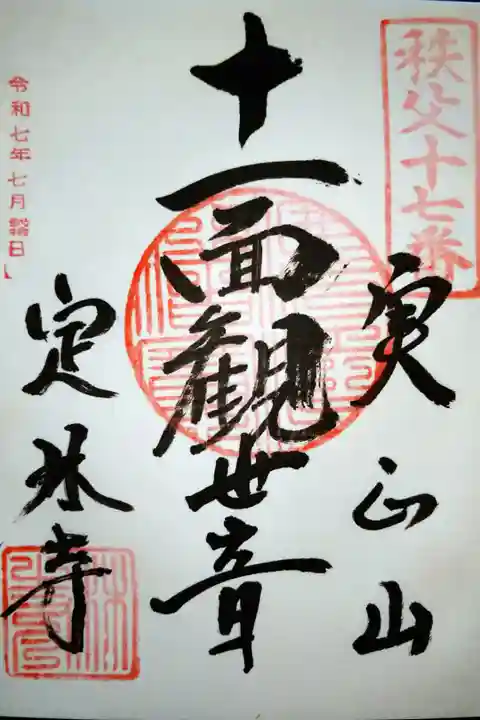 秩父十七番
実正山
十一面観世音
定林寺
令和七年七月 日